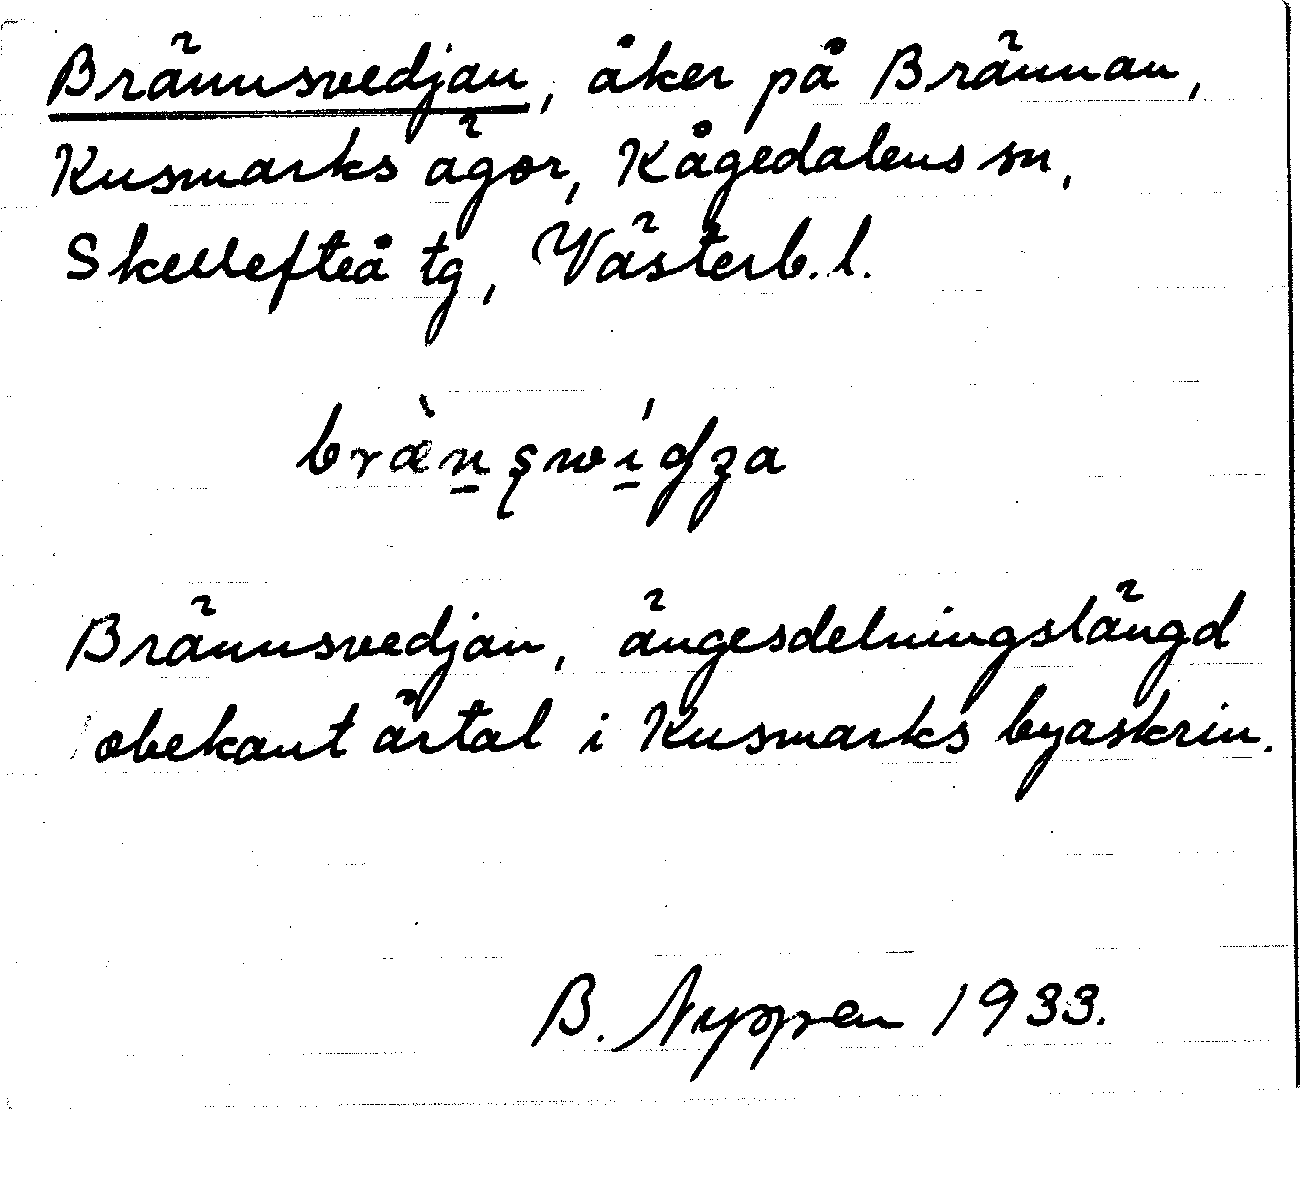 Brännsvedjan, åker på Brännan,
Kusmarks ägor, Kågedalens sn,
Skellefteå tg, Västerb. l.
bræ̀n̲ʂwí̲ʤa
Brännsvedjan, ängesdelningslängd
obekant årtal i Kusmarks byaskrin.
B. Nyppen 1933.